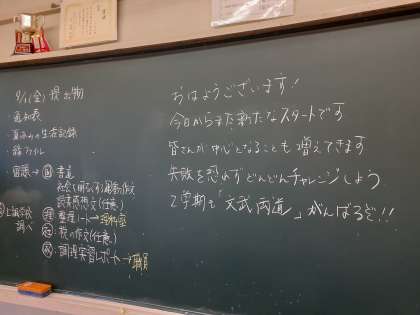 9/1(金) 提出物
・通知表
・夏休みの生活記録
・緑ファイル
・宿題→ 国 書道
社会を明るくする運動作文
読書感想文(任意)
上級学校
調べ
理 整理ノート→理科室
社 税の作文(任意)
家 調理実習レポート→職員
おはようございます!
今日からまた新たなスタートです
皆さんが中心となることも増えてきます
失敗を恐れずどんどんチャレンジしよう
2学期も「文武両道」がんばるぞ!!